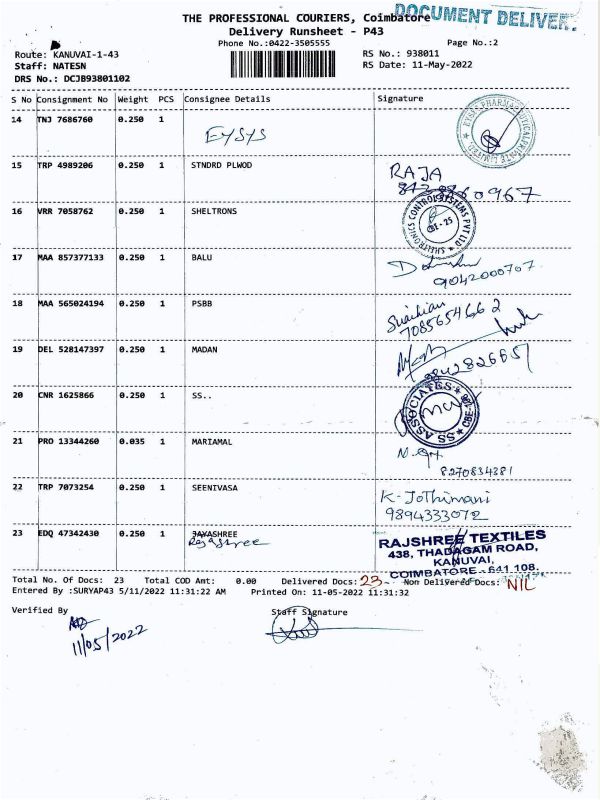 THE PROFESSIONAL COURIERS, Coimbatore
DOCUMENT DELIVER
Delivery Runsheet - P43
Phone No.:0422-3505555 Page No.:2
Route: KANUVAI-1-43 RS No.: 938011
Staff: NATESN RS Date: 11-May-2022
DRS No.: DCJB93801102
S No Consignment No Weight PCS Consignee Details Signature
14 TNJ 7686760 0.250 1
EYSYS
15 TRP 4989206 0.250 1 STNDRD PLWOD RAJA
16 VRR 7058762 0.250 1 SHELTRONS
SHELTRONICS CONTROL SYSTEMS PVT LTD
CBE-25
17 MAA 857377133 0.250 1 BALU
9042000707
18 MAA 565024194 0.250 1 PSBB
7085654662
19 DEL 528147397 0.250 1 MADAN
20 CNR 1625866 0.250 1 SS..
SS ASSOCIATES
21 PRO 13344260 0.035 1 MARIAMAL
8270834381
22 TRP 7073254 0.250 1 SEENIVASA K-Jothimani
9894333072
23 EDQ 47342430 0.250 1 JAYASHREE
Rajashree
RAJSHREE TEXTILES
438, THADAGAM ROAD,
KANUVAI,
COIMBATORE - 641 108.
Total No. Of Docs: 23 Total COD Amt: 0.00 Delivered Docs: 23 Non Delivered Docs: NIL
Entered By :SURYAP43 5/11/2022 11:31:22 AM Printed On: 11-05-2022 11:31:32
Verified By Staff Signature
11/05/2022